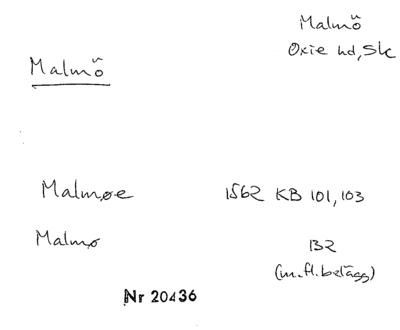 Malmö
Oxie hd, Sk
Malmö
Malmøe 1562 KB 101, 103
Malmø 132
(m.fl. belägg)
Nr 20436